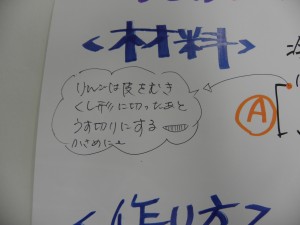 <材料>
リンゴは皮をむき
くし形に切ったあと
うす切りにする
かさめに
A
<作り方>